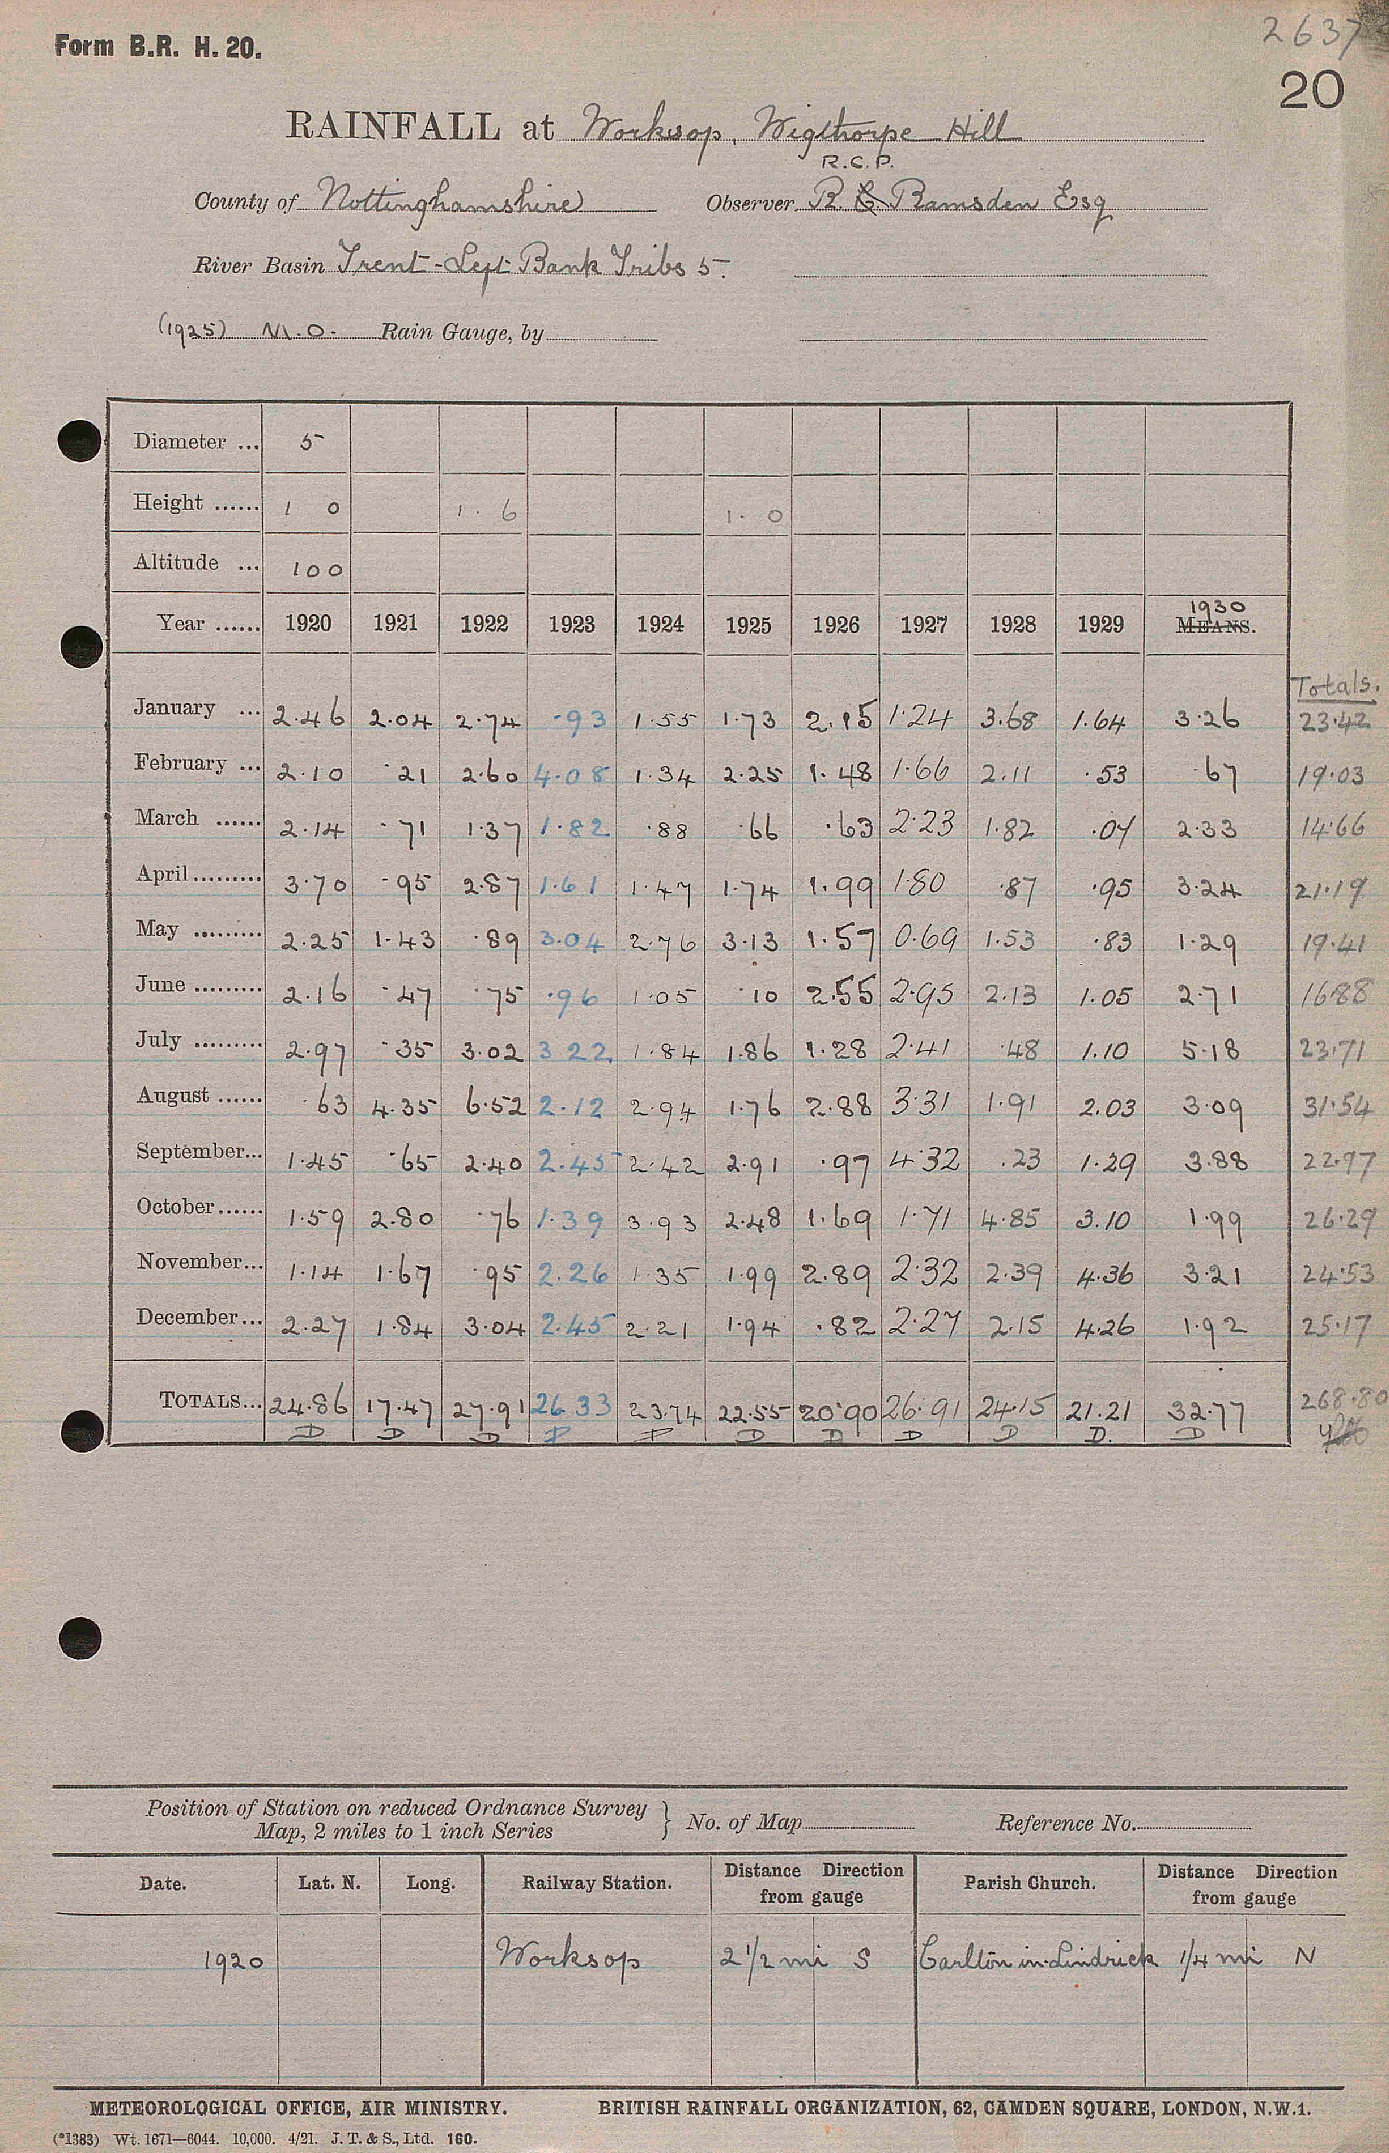 2637
Form B.R. H. 20.
20
RAINFALL at Worksop, Wigthorpe Hill
R.C.P.
County of Nottinghamshire Observer R. C. Ramsden Esq
River Basin Trent - Left Bank Tribs 5.
(1925) M.O. Rain Gauge, by
Diameter ... 5
Height ...... 1 0 1. 6 1. 0
Altitude ... 100
1930
Year ...... 1920 1921 1922 1923 1924 1925 1926 1927 1928 1929 MEANS.
Totals.
January ... 2.46 2.04 2.74 .93 1.55 1.73 2.15 1.24 3.68 1.64 3.26 23.42
February ... 2.10 .21 2.60 4.08 1.34 2.25 1.48 1.66 2.11 .53 .67 19.03
March ...... 2.14 .71 1.37 1.82 .88 .66 .63 2.23 1.82 .07 2.33 14.66
April ......... 3.70 .95 2.87 1.61 1.47 1.74 1.99 1.80 .87 .95 3.24 21.19
May ......... 2.25 1.43 .89 3.04 2.76 3.13 1.57 0.69 1.53 .83 1.29 19.41
June ......... 2.16 .47 .75 .96 1.05 .10 2.55 2.95 2.13 1.05 2.71 16.88
July ......... 2.97 .35 3.02 3 22 1.84 1.86 1.28 2.41 .48 1.10 5.18 23.71
August ...... .63 4.35 6.52 2.12 2.94 1.76 2.88 3.31 1.91 2.03 3.09 31.54
September... 1.45 .65 2.40 2.45 2.42 2.91 .97 4.32 .23 1.29 3.88 22.97
October ...... 1.59 2.80 .76 1.39 3.93 2.48 1.69 1.71 4.85 3.10 1.99 26.29
November... 1.14 1.67 .95 2.26 1.35 1.99 2.89 2.32 2.39 4.36 3.21 24.53
December... 2.27 1.84 3.04 2.45 2.21 1.94 .82 2.27 2.15 4.26 1.92 25.17
TOTALS... 24.86 17.47 27.91 26 33 23.74 22.55 20.90 26.91 24.15 21.21 32.77 268.80
D D D D D D D D D D. D
Position of Station on reduced Ordnance Survey } No. of Map Reference No.
Map, 2 miles to 1 inch Series
Date. Lat. N. Long. Railway Station. Distance Direction from gauge Parish Church. Distance Direction from gauge
1920 Worksop 2 1/2 mi S Carlton in Lindrick 1/4 mi N
METEOROLOGICAL OFFICE, AIR MINISTRY. BRITISH RAINFALL ORGANIZATION, 62, CAMDEN SQUARE, LONDON, N.W.1.
(*1383) Wt. 1671—6044. 10,000. 4/21. J. T. & S., Ltd. 160.